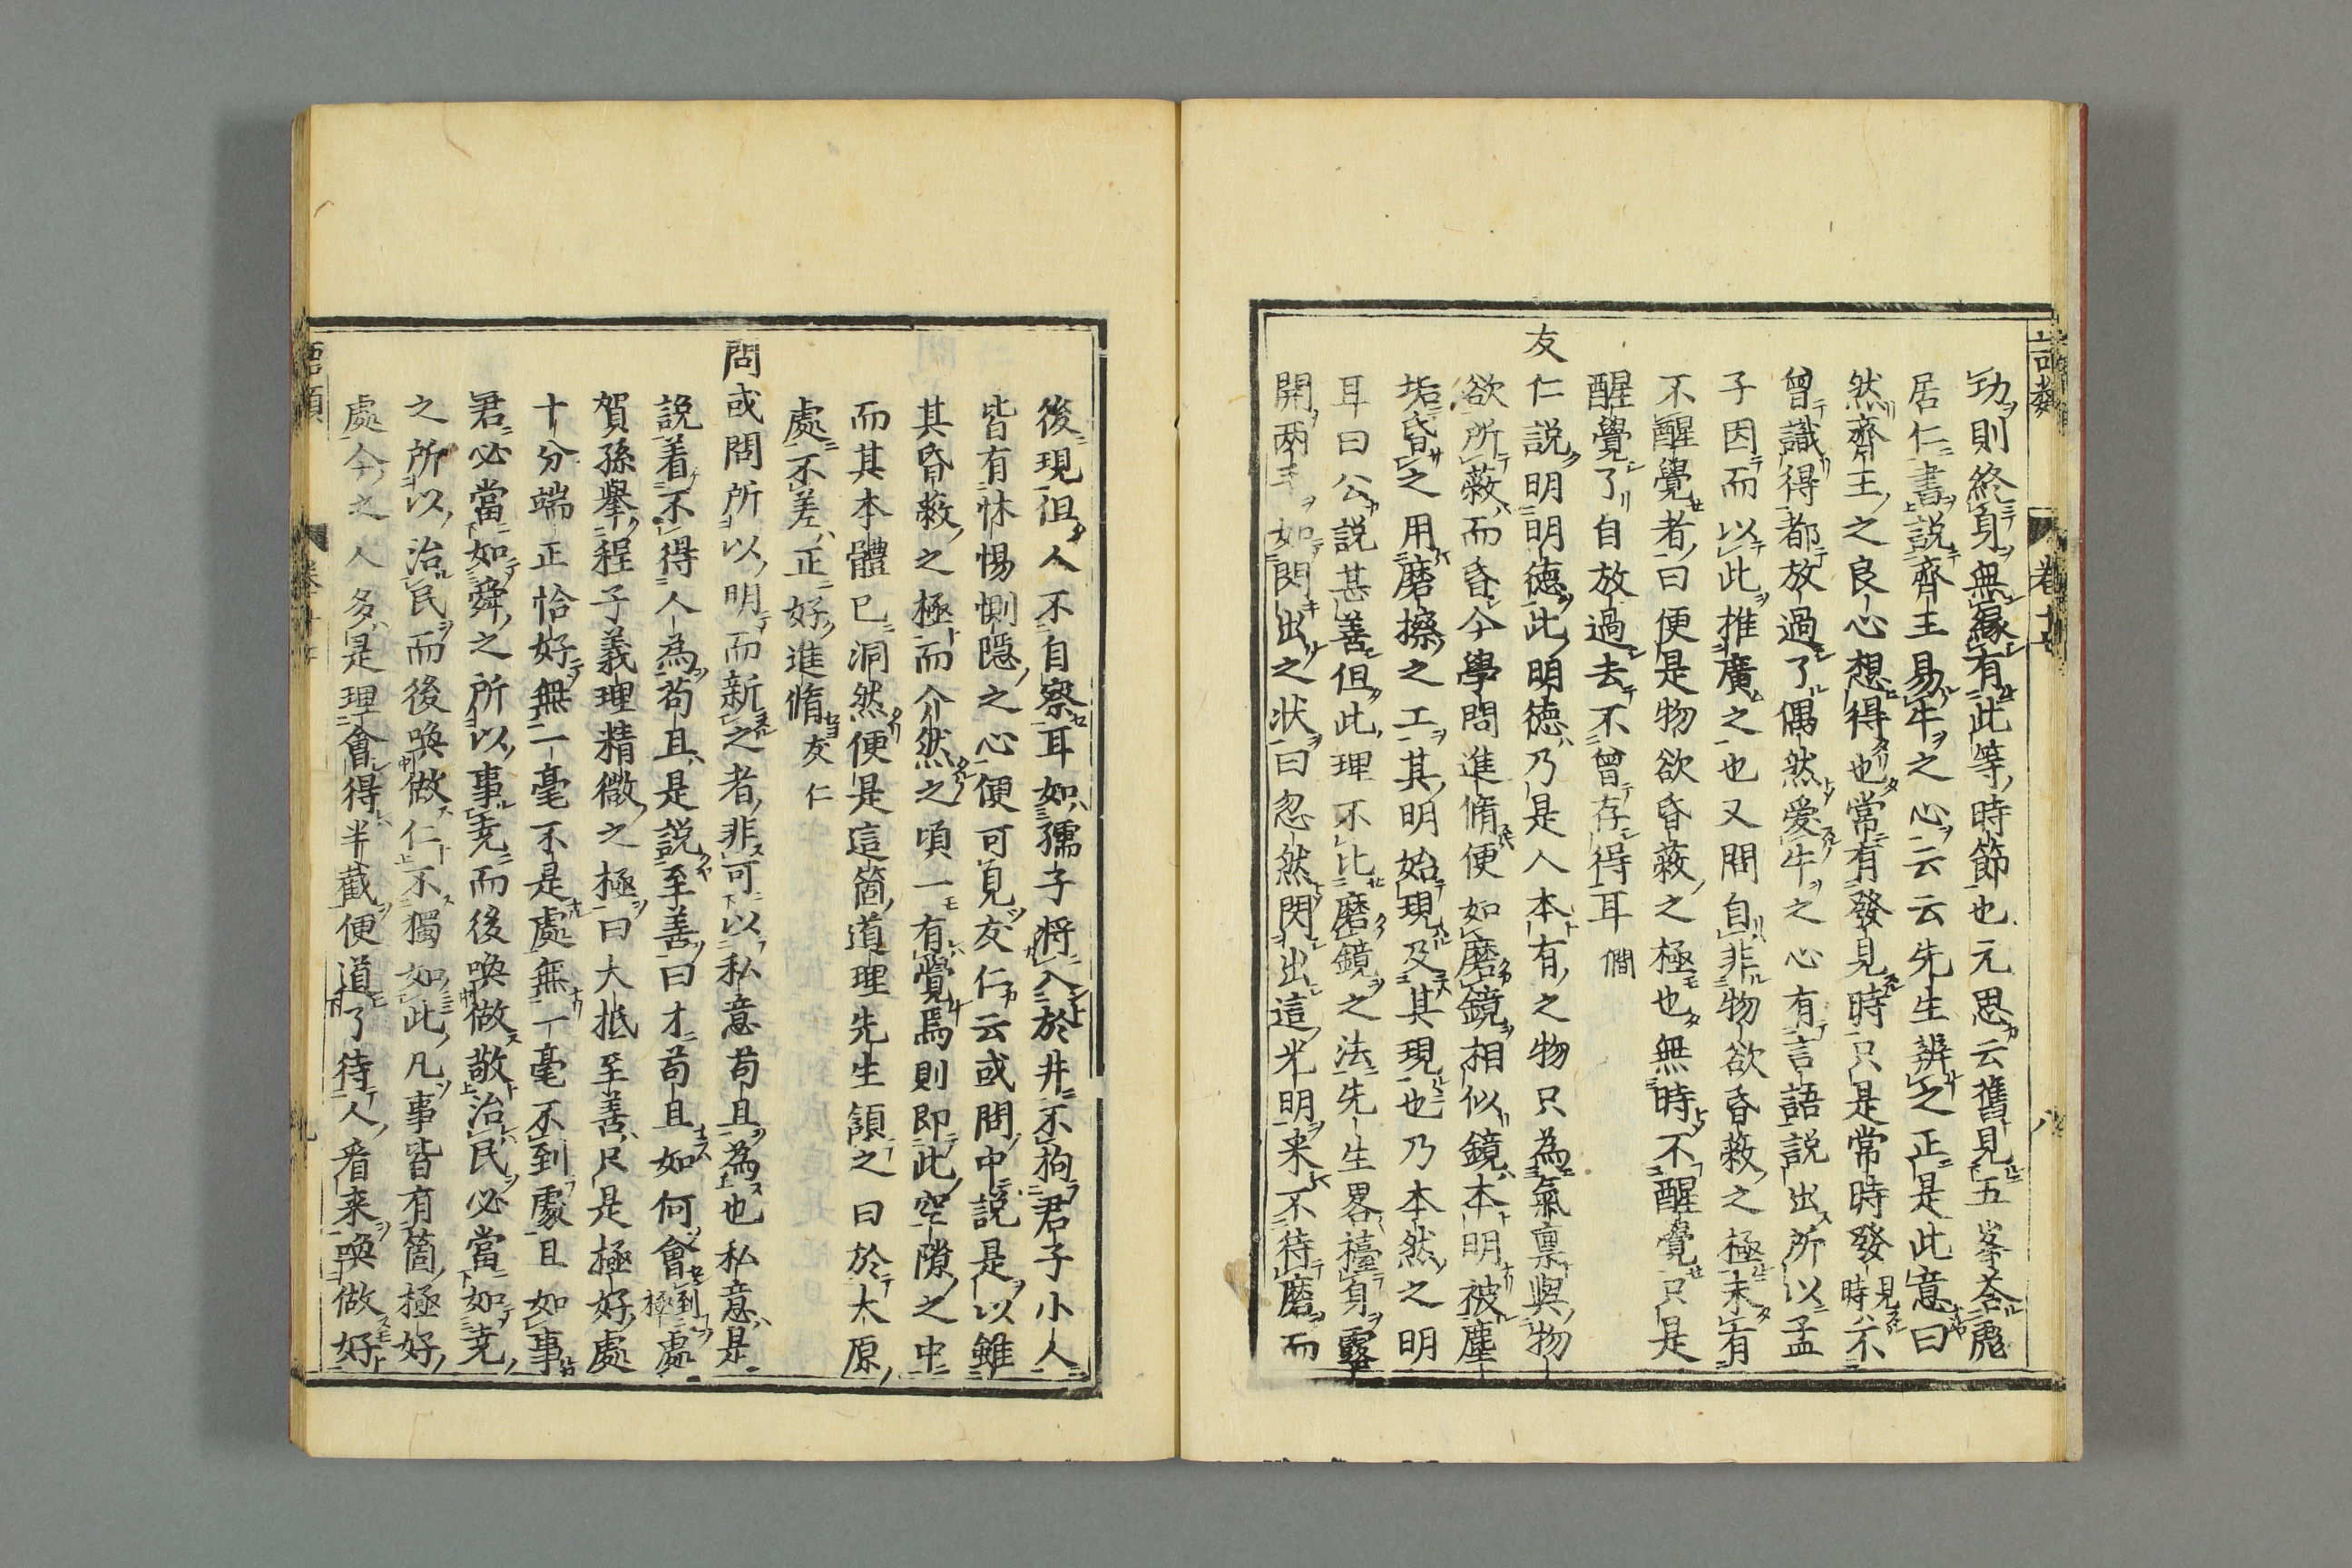 功則終身無緣有此等時節也元思云舊見五峯荅彪
居仁書説齊王易牛之心云云先生辨之正是此意曰
然齊王之良心想得也常有發見時只是常時發見時不
曾識得都放過了偶然愛牛之心有言語説出所以孟
子因而以此推廣之也又問自非物欲昏蔽之極未有
不醒覺者曰便是物欲昏蔽之極也無時不醒覺只是
醒覺了自放過去不曾存得耳 僩
友仁説明明德此明德乃是人本有之物只為氣稟與物
欲所蔽而昏今學問進脩便如磨鏡相似鏡本明被塵
垢昏之用磨擦之工其明始現及其現也乃本然之明
耳曰公説甚善但此理不比磨鏡之法先生畧擡身露
開兩手如閃出之状曰忽然閃出這光明来不待磨而
後現但人不自察耳如孺子將入於井不拘君子小人
皆有怵惕惻隱之心便可見友仁云或問中説是以雖
其昏蔽之極而介然之頃一有覺焉則即此空隙之中
而其本體已洞然便是這箇道理先生頷之曰於大原
處不差正好進脩 友仁
問或問所以明而新之者非可以私意苟且為也私意是
説着不得人為苟且是説至善曰才苟且如何會到極處
賀孫舉程子義理精微之極曰大抵至善只是極好處
十分端正恰好無一毫不是處無一毫不到處且如事
君必當如舜之所以事堯而後喚做敬治民必當如堯
之所以治民而後喚做仁不獨如此凡事皆有箇極好
處今之人多是理會得半截便道了待人看来喚做好